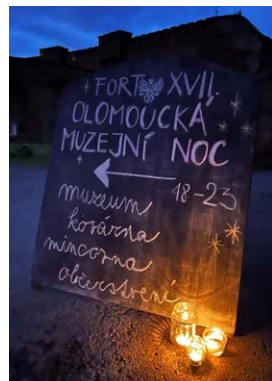 FORT XVII.
OLOMOUCKÁ
MUZEJNÍ NOC
18-23
muzeum
kovárna
mincovna
občerstvení